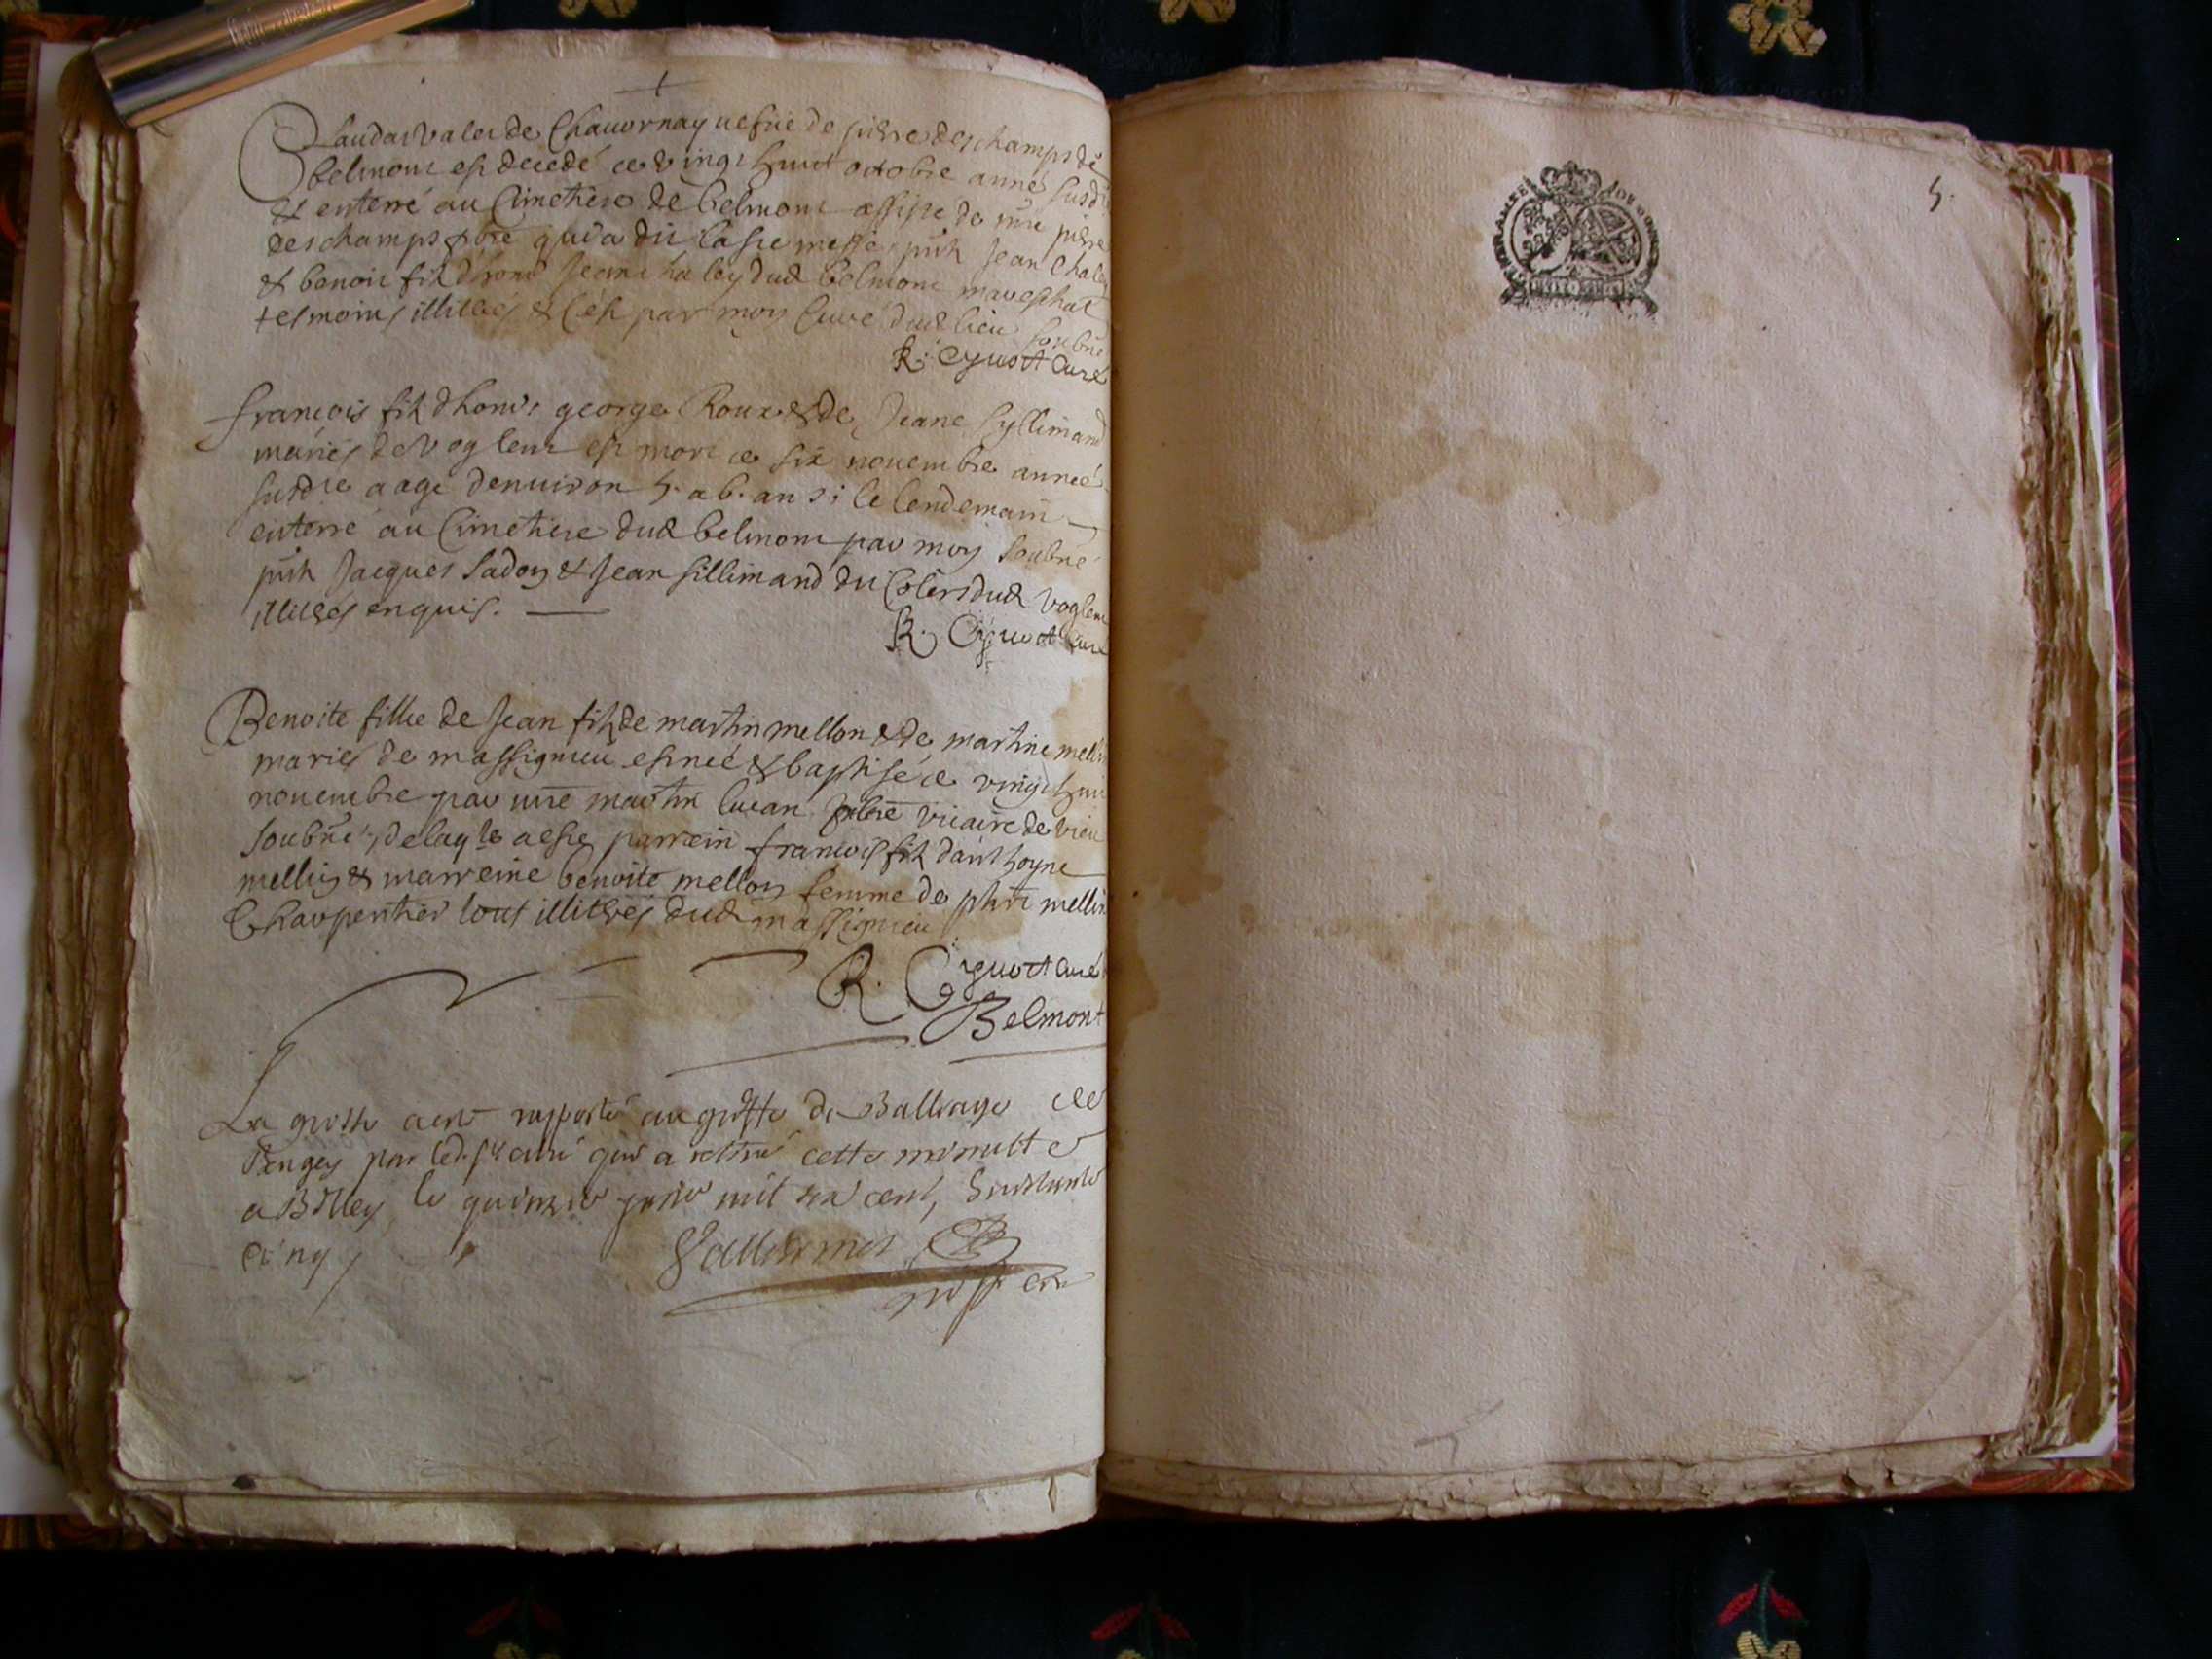 de Chavornay vefue de pierre deschamps de
belmont est decedé ce vingt huict octobre anné susd
& enterré au Cimetiere de belmont assiste de mre pierre
deschamps pbre qui a dit la ste messe pnt Jean Chaley
& benoit fih dhond Jean chaley dud belmont mareschal
tesmoins illitres & C'est par moy Curé dud lieu soubné
R. Cyuoct Curé
francois fih dhonor george Roux & de Jeane Syllimand
mariés de Vogleur est mort ce six nouembre anneé
susdte aagé denuiron 5. a 6. ans; le lendemain
enterré au Cimetiere dud belmont par moy soubné
pnt Jacques Ladoy & Jean sillimand du dud Vogleur
illitres enquis.
R. Cyuoct Curé
Benoite fillie de Jean fih de martin mellon & de martine mellin
mariés de massignieu est neé & baptiseé ce vingt huit
nouembre par mre martin lucan pbre vicaire de vieu
soubné, de laqle a esté parrein francois fih danthoyne
mellin & marreine benoite mellon femme de phrt mellin
Charpentier tous illitres dud massignieu
R. Cyuoct Curé
Belmont
La grosse a esté rapportée au greffe du Balliage de
Bugey par led. sr curé qui a retiré cette minutte
a Belley le quinzie mil six cent, septante
cinq
greffier
5.